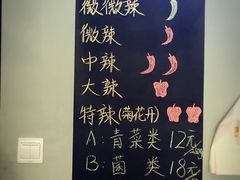 微微辣
微辣
中辣
大辣
特辣(菊花丹)
A:青菜类 12元
B:菌 类 18元